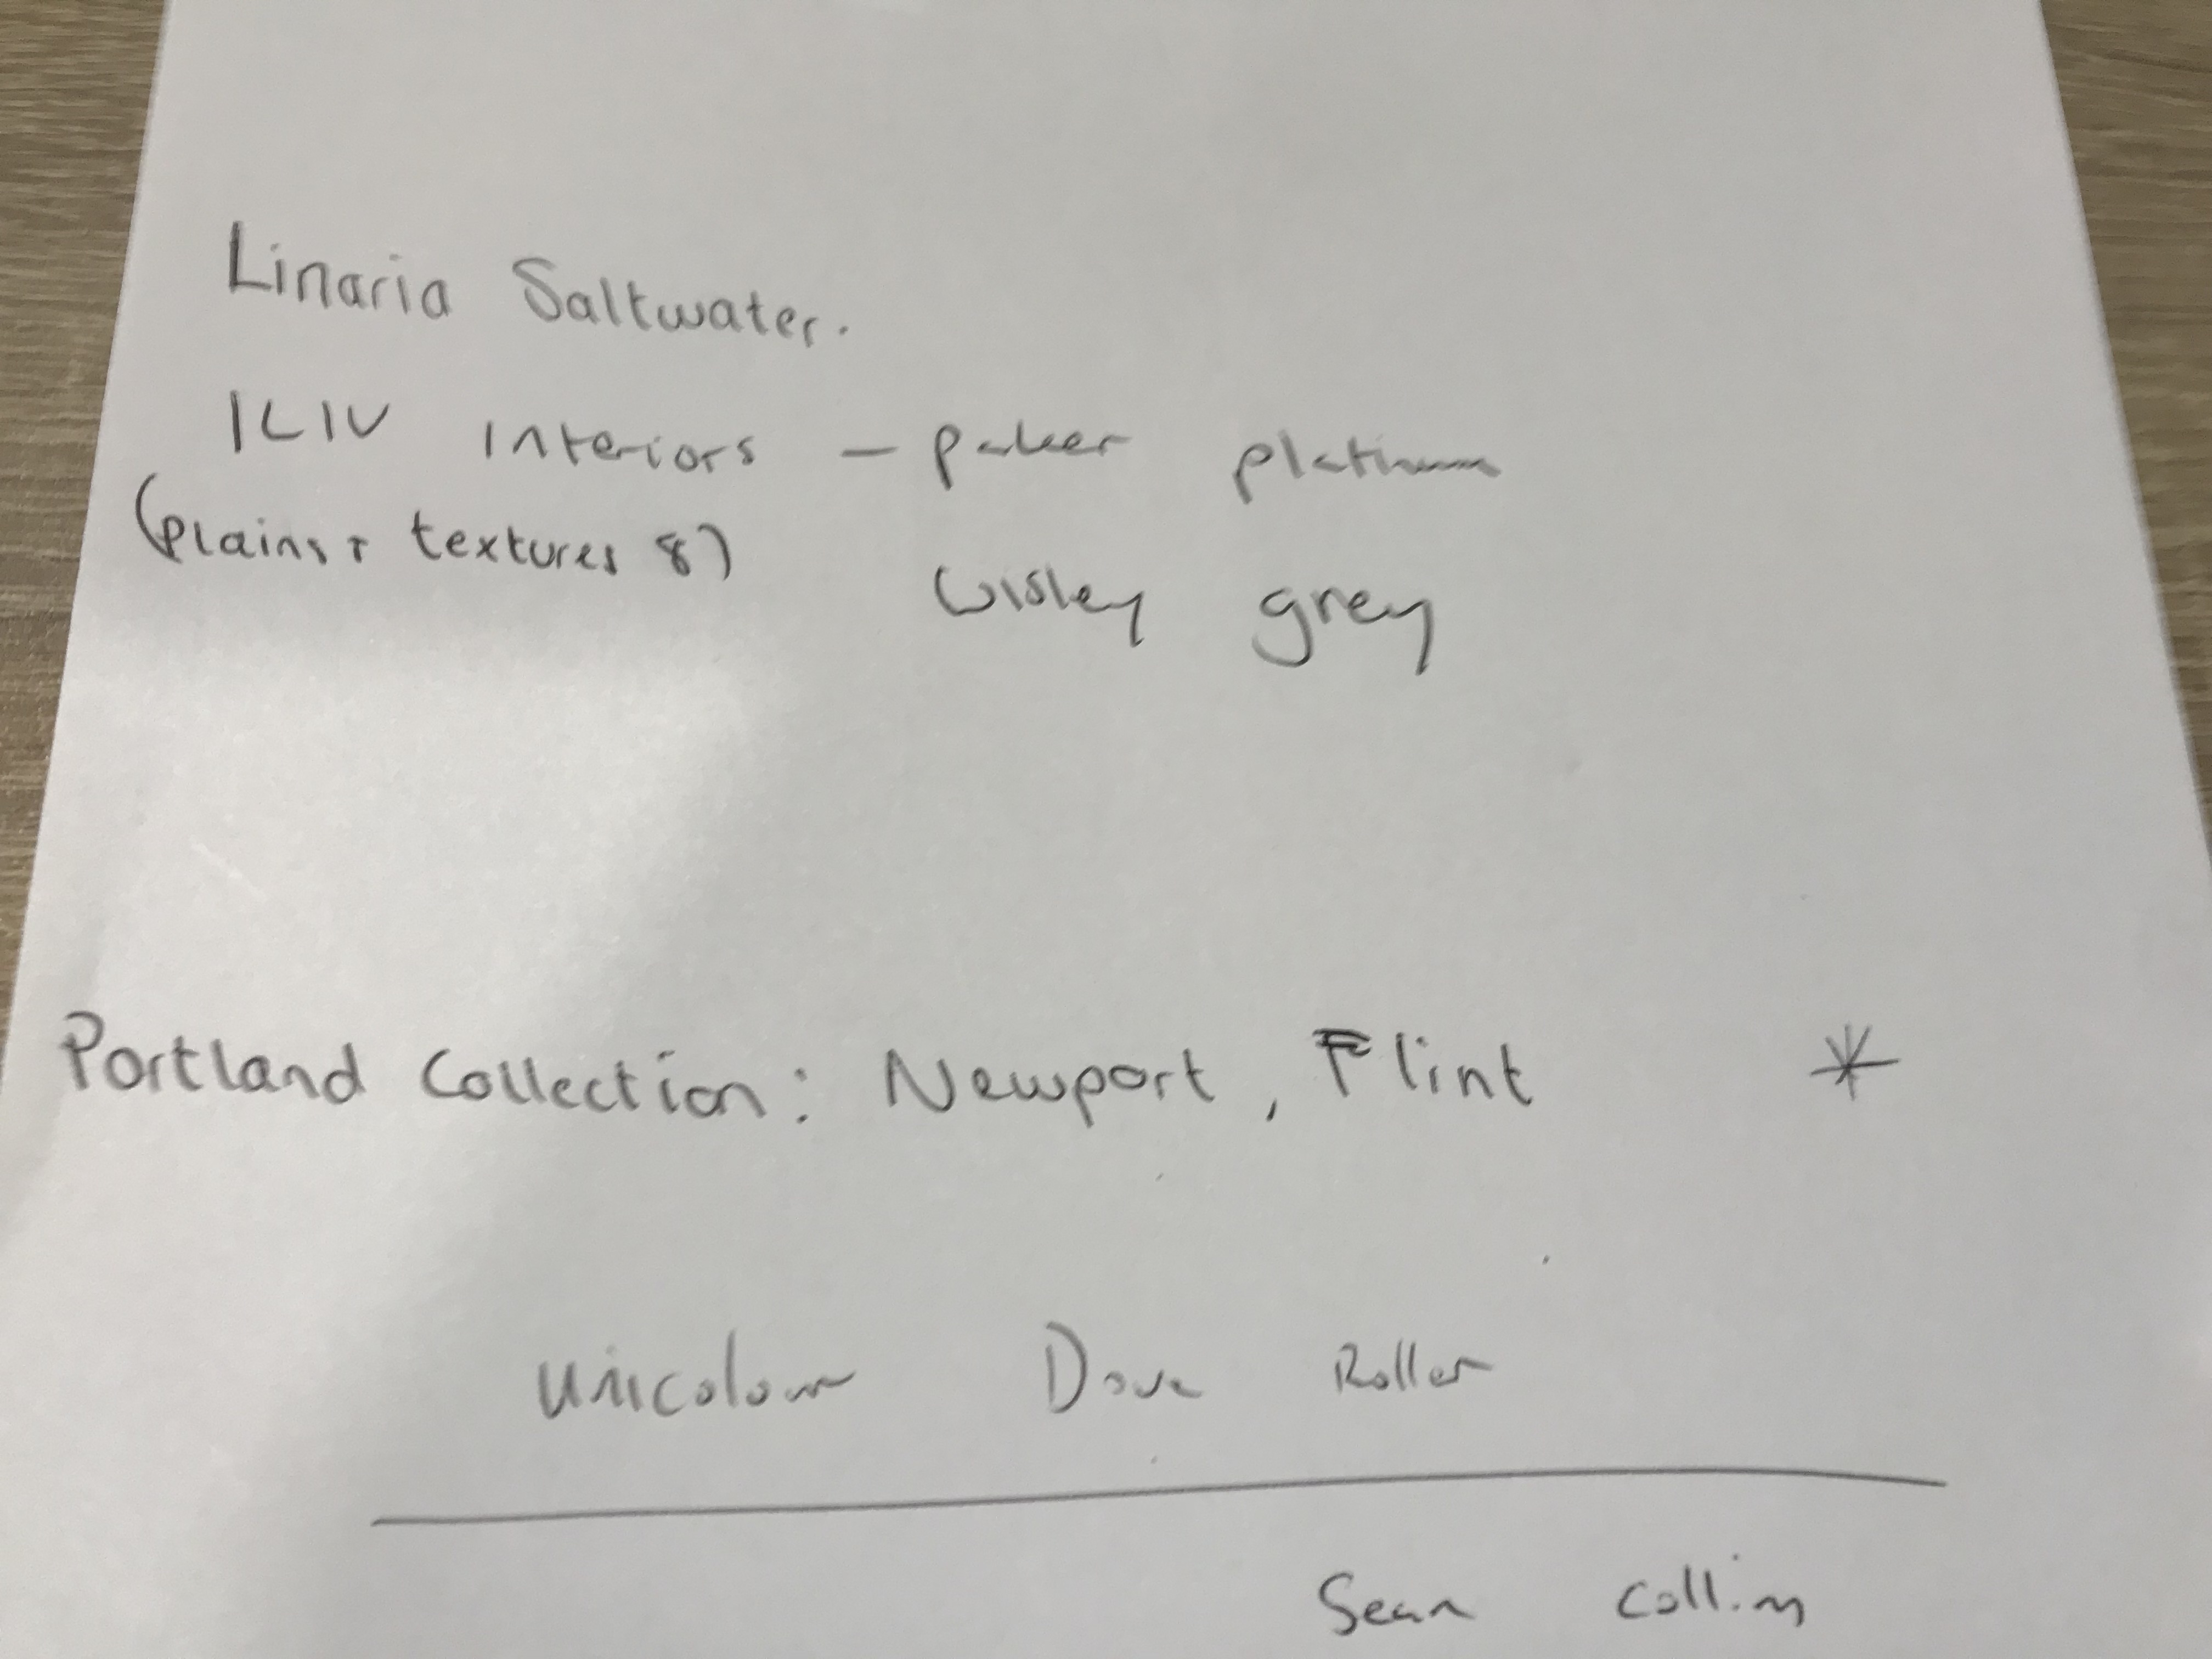 Linaria Saltwater.
ILIV Interiors - platinum
(plains + textures 8)
Wisley grey
Portland Collection: Newport, Flint *
Unicolour Dove Roller
Sean Collins